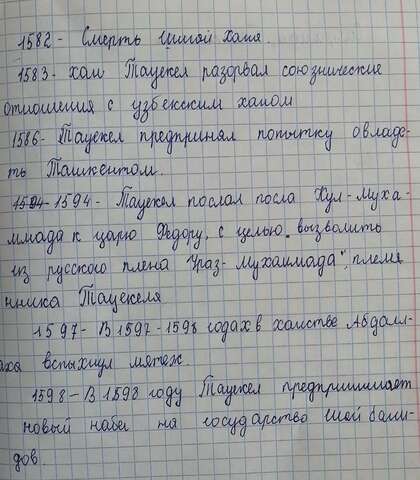 1582 - Смерть Шигай хана.
1583 - хан Тауекел разорвал союзнические
отношения с узбекским ханом
1586 - Тауекел предпринял попытку овладе-
ть Ташкентом.
1594 - 1594 - Тауекел послал посла Кул-Муха-
ммада к царю Федору, с целью вызволить
из русского плена Ураз-Мухаммада, племя
нника Тауекеля
1597 - В 1597-1598 годах в ханстве Абдалл-
аха вспыхнул мятеж.
1598 - В 1598 году Тауекел предпринимает
новый набег на государство Шейбани-
дов.